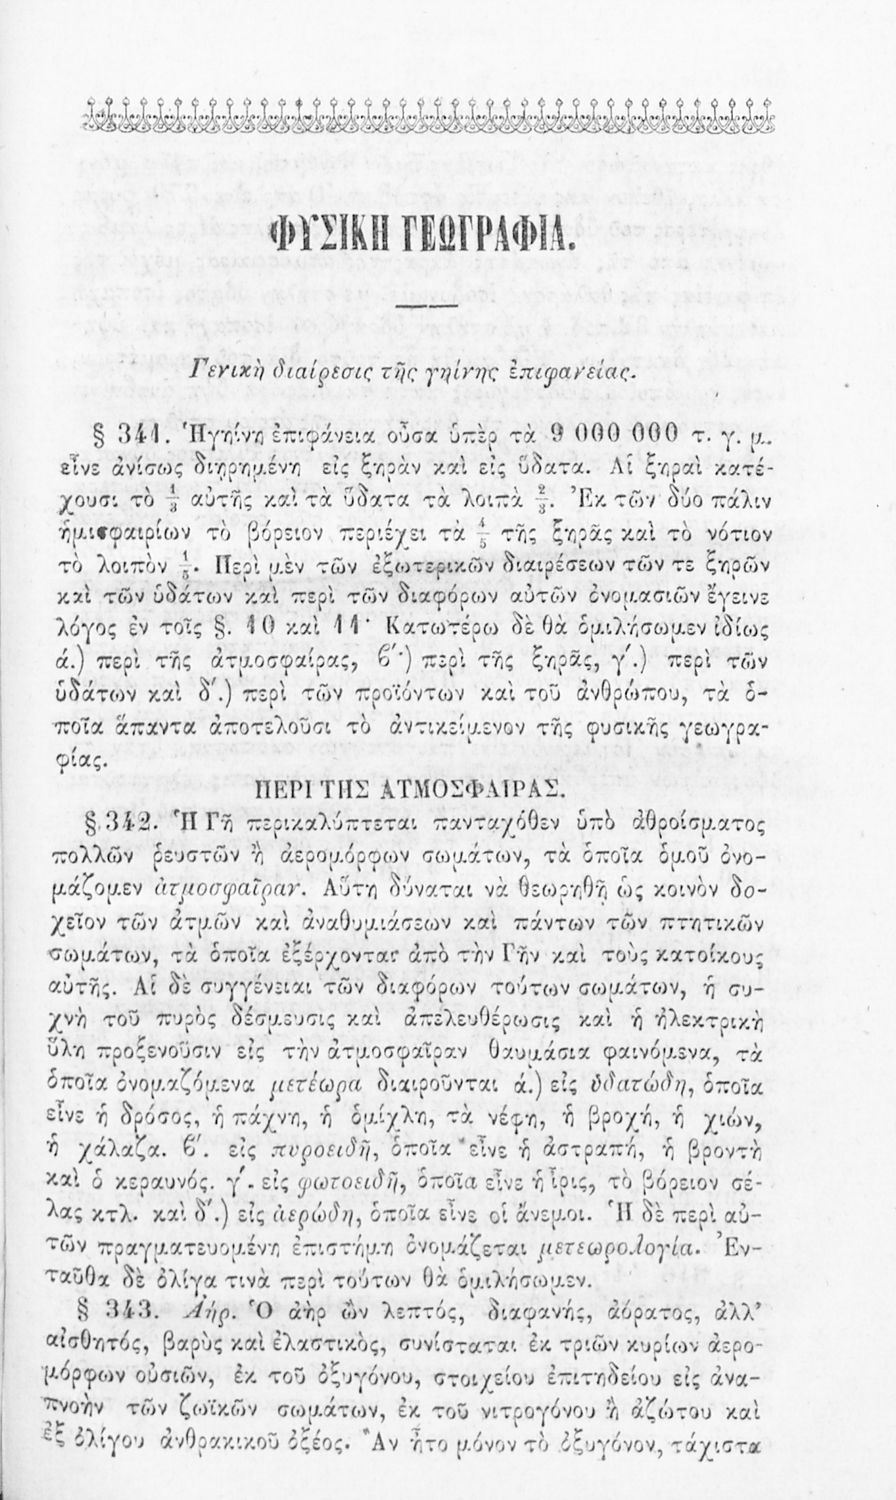 ΦΥΣΙΚΗ ΓΕΩΓΡΑΦΙΑ.
Γενικὴ διαίρεσις τῆς γηίνης ἐπιφανείας.
§ 341. Ἡ γηίνη ἐπιφάνεια οὖσα ὑπὲρ τὰ 9 000 000 τ. γ. μ.
εἶνε ἀνίσως διῃρημένη εἰς ξηρὰν καὶ εἰς ὕδατα. Αἱ ξηραὶ κατέ-
χουσι τὸ 1/3 αὐτῆς καὶ τὰ ὕδατα τὰ λοιπὰ 2/3. Ἐκ τῶν δύο πάλιν
ἡμισφαιρίων τὸ βόρειον περιέχει τὰ 4/5 τῆς ξηρᾶς καὶ τὸ νότιον
τὸ λοιπὸν 1/5. Περὶ μὲν τῶν ἐξωτερικῶν διαιρέσεων τῶν τε ξηρῶν
καὶ τῶν ὑδάτων καὶ περὶ τῶν διαφόρων αὐτῶν ὀνομασιῶν ἔγεινε
λόγος ἐν τοῖς §. 10 καὶ 11· Κατωτέρω δὲ θὰ ὁμιλήσωμεν ἰδίως
ά.) περὶ τῆς ἀτμοσφαίρας, β΄·) περὶ τῆς ξηρᾶς, γ΄.) περὶ τῶν
ὑδάτων καὶ δ΄.) περὶ τῶν προϊόντων καὶ τοῦ ἀνθρώπου, τὰ ὁ-
ποῖα ἅπαντα ἀποτελοῦσι τὸ ἀντικείμενον τῆς φυσικῆς γεωγρα-
φίας.
ΠΕΡΙ ΤΗΣ ΑΤΜΟΣΦΑΙΡΑΣ.
§.342. Ἡ Γῆ περικαλύπτεται πανταχόθεν ὑπὸ ἀθροίσματος
πολλῶν ῥευστῶν ἢ ἀερομόρφων σωμάτων, τὰ ὁποῖα ὁμοῦ ὀνο-
μάζομεν ἀτμοσφαῖραν. Αὕτη δύναται νὰ θεωρηθῇ ὡς κοινὸν δο-
χεῖον τῶν ἀτμῶν καὶ ἀναθυμιάσεων καὶ πάντων τῶν πτητικῶν
σωμάτων, τὰ ὁποῖα ἐξέρχονται ἀπὸ τὴν Γῆν καὶ τοὺς κατοίκους
αὐτῆς. Αἱ δὲ συγγένειαι τῶν διαφόρων τούτων σωμάτων, ἡ συ-
χνὴ τοῦ πυρὸς δέσμευσις καὶ ἀπελευθέρωσις καὶ ἡ ἠλεκτρικὴ
ὕλη προξενοῦσιν εἰς τὴν ἀτμοσφαῖραν θαυμάσια φαινόμενα, τὰ
ὁποῖα ὀνομαζόμενα μετέωρα διαιροῦνται ά.) εἰς ὑδατώδη, ὁποῖα
εἶνε ἡ δρόσος, ἡ πάχνη, ἡ ὁμίχλη, τὰ νέφη, ἡ βροχή, ἡ χιών,
ἡ χάλαζα. β΄. εἰς πυροειδῆ, ὁποῖα εἶνε ἡ ἀστραπή, ἡ βροντὴ
καὶ ὁ κεραυνός. γ΄. εἰς φωτοειδῆ, ὁποῖα εἶνε ἡ ἶρις, τὸ βόρειον σέ-
λας κτλ. καὶ δ΄.) εἰς ἀερώδη, ὁποῖα εἶνε οἱ ἄνεμοι. Ἡ δὲ περὶ αὐ-
τῶν πραγματευομένη ἐπιστήμη ὀνομάζεται μετεωρολογία. Ἐν-
ταῦθα δὲ ὀλίγα τινὰ περὶ τούτων θὰ ὁμιλήσωμεν.
§ 343. Ἀήρ. Ὁ ἀὴρ ὢν λεπτός, διαφανής, ἀόρατος, ἀλλ’
αἰσθητός, βαρὺς καὶ ἐλαστικὸς, συνίσταται ἐκ τριῶν κυρίων ἀερο-
μόρφων οὐσιῶν, ἐκ τοῦ ὀξυγόνου, στοιχείου ἐπιτηδείου εἰς ἀνα-
πνοὴν τῶν ζωϊκῶν σωμάτων, ἐκ τοῦ νιτρογόνου ἢ ἀζώτου καὶ
ἐξ ὀλίγου ἀνθρακικοῦ ὀξέος. Ἂν ἦτο μόνον τὸ ὀξυγόνον, τάχιστα